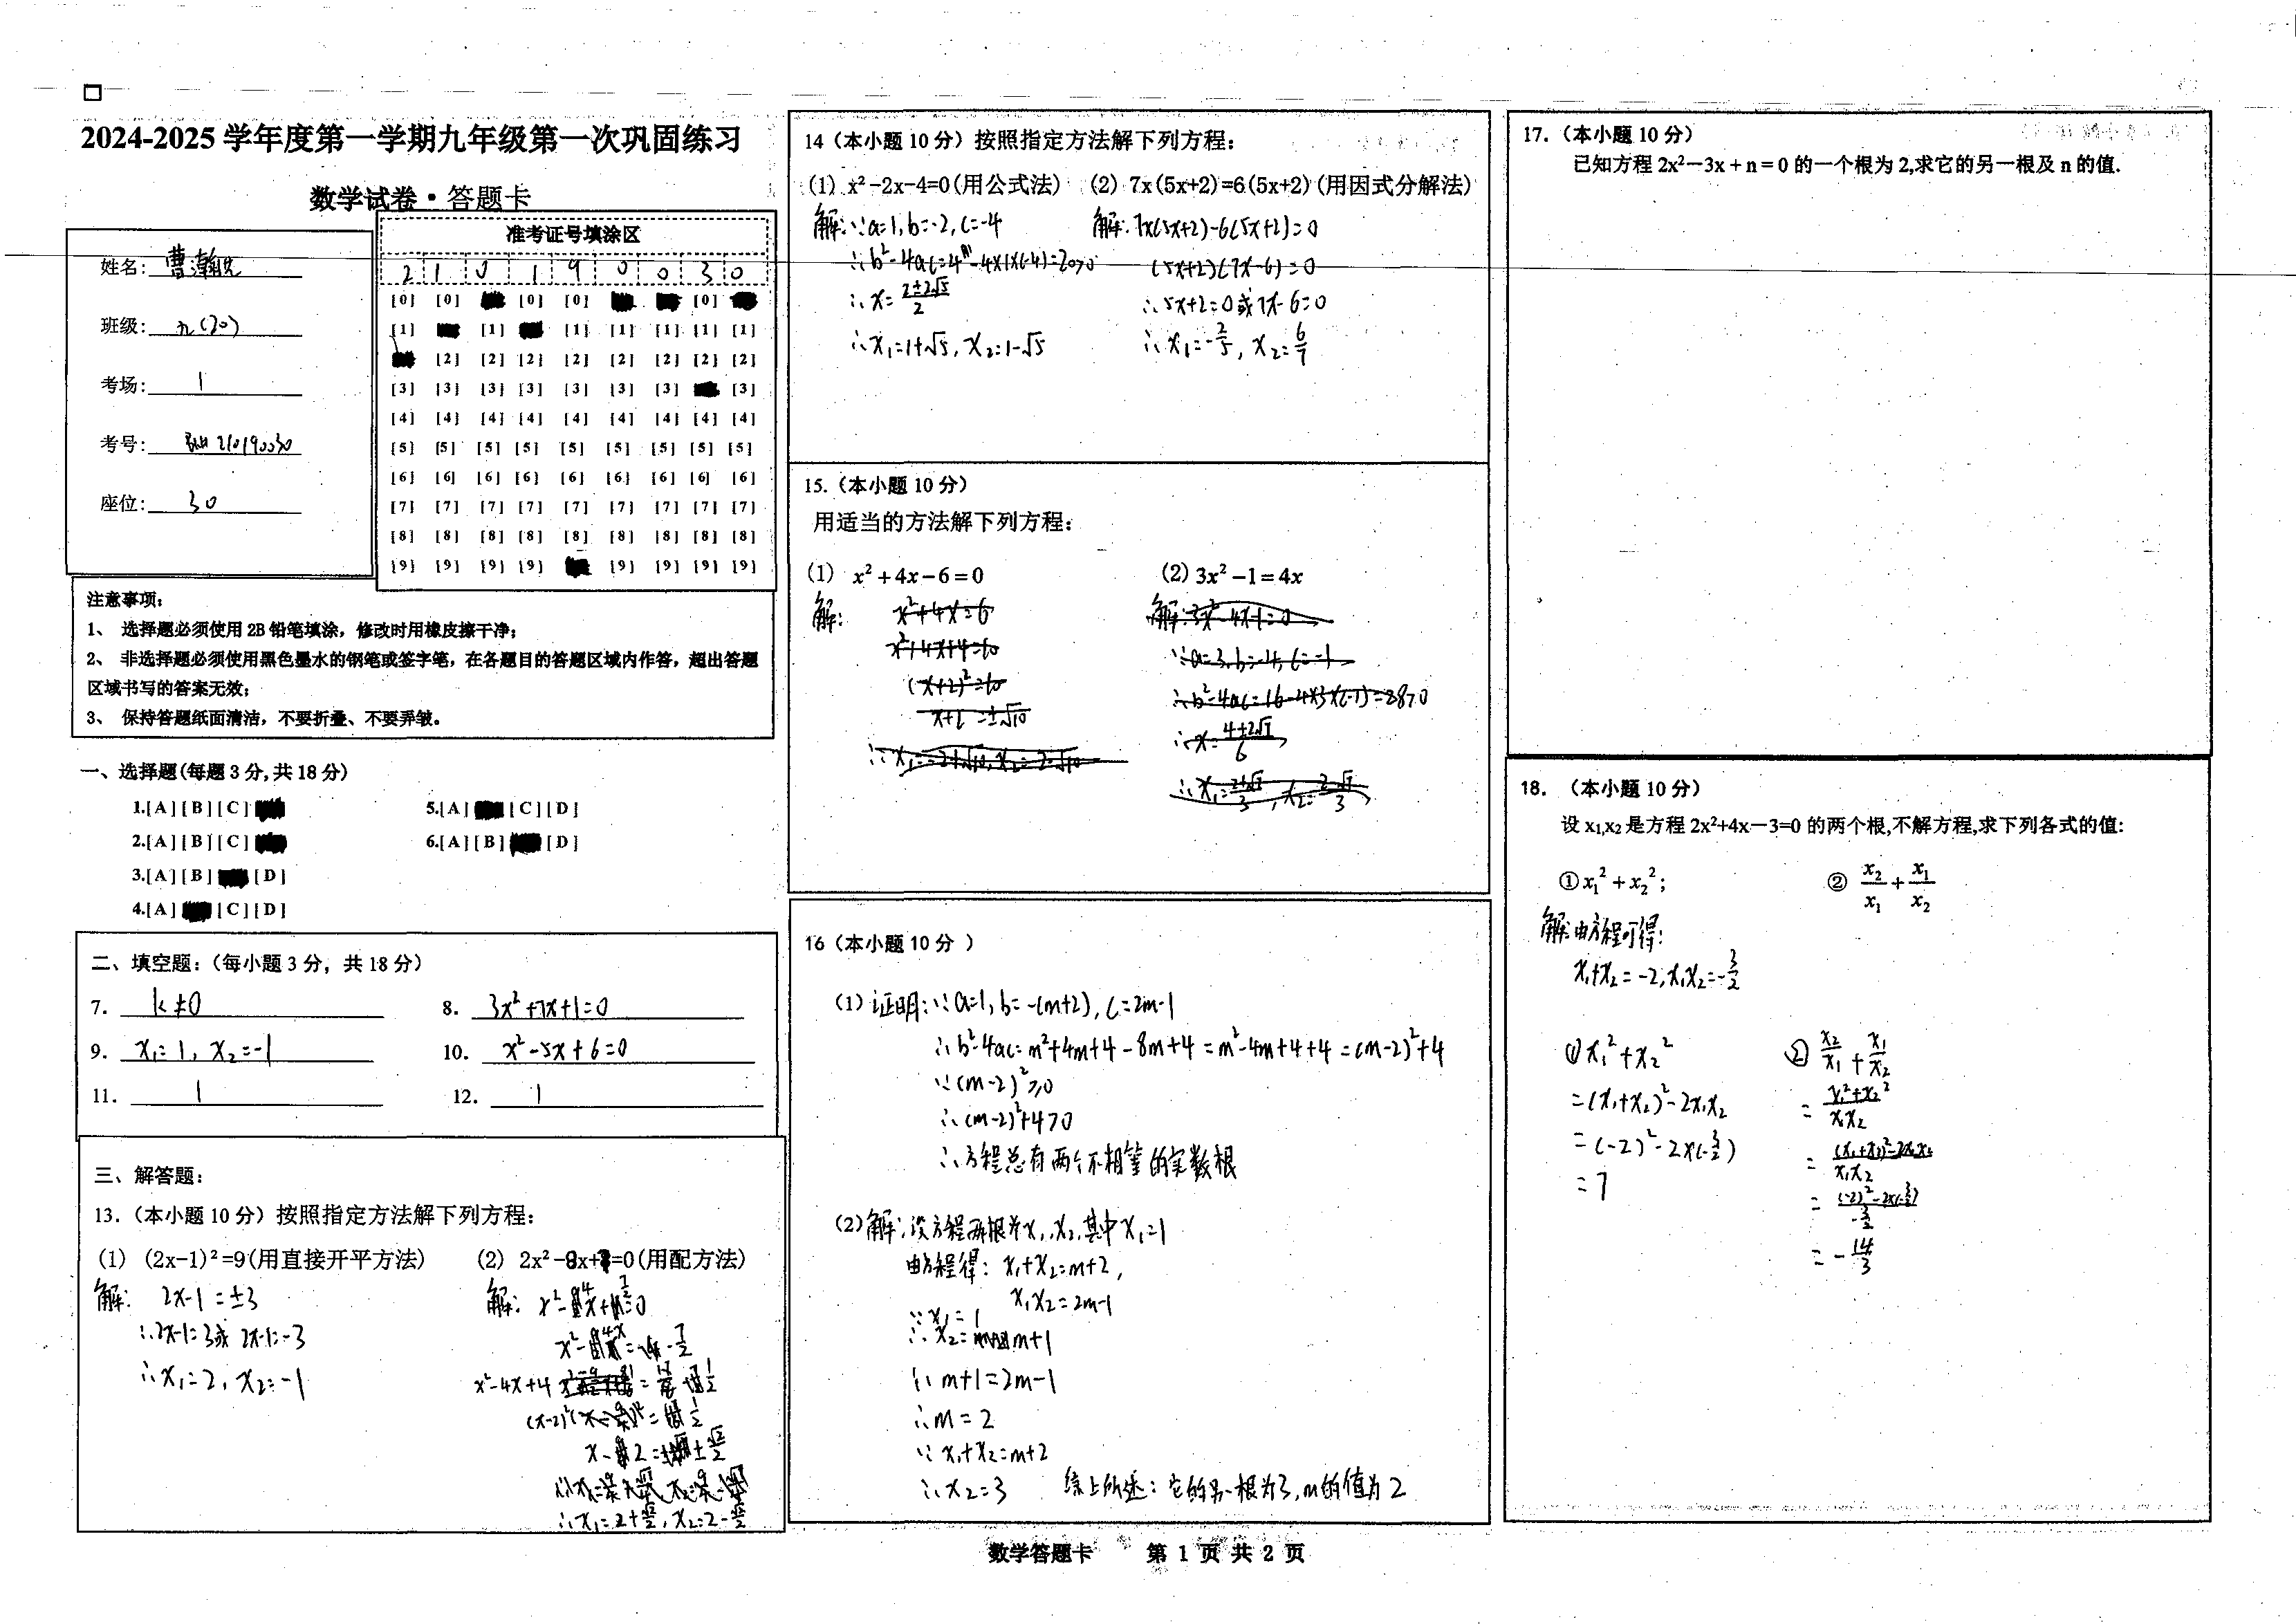 2024-2025 学年度第一学期九年级第一次巩固练习
数学试卷·答题卡
姓名：
班级： 九(20)
考场： 1
考号： 210190030
座位： 30
准考证号填涂区
2 1 0 1 9 0 0 3 0
[0] [0] [0] [0] [0] [0]
[1] [1] [1] [1] [1] [1] [1]
[2] [2] [2] [2] [2] [2] [2] [2]
[3] [3] [3] [3] [3] [3] [3] [3]
[4] [4] [4] [4] [4] [4] [4] [4] [4]
[5] [5] [5] [5] [5] [5] [5] [5] [5]
[6] [6] [6] [6] [6] [6] [6] [6] [6]
[7] [7] [7] [7] [7] [7] [7] [7] [7]
[8] [8] [8] [8] [8] [8] [8] [8] [8]
[9] [9] [9] [9] [9] [9] [9] [9]
注意事项：
1、 选择题必须使用 2B 铅笔填涂，修改时用橡皮擦干净；
2、 非选择题必须使用黑色墨水的钢笔或签字笔，在各题目的答题区域内作答，超出答题
区域书写的答案无效；
3、 保持答题纸面清洁，不要折叠、不要弄皱。
一、选择题(每题 3 分,共 18 分)
1.[A][B][C]
5.[A] [C][D]
2.[A][B][C]
6.[A][B] [D]
3.[A][B] [D]
4.[A] [C][D]
二、填空题：（每小题 3 分，共 18 分）
7. k≠0
8. 3x²+7x+1=0
9. x₁=1, x₂=-1
10. x²-5x+6=0
11. 1
12. 1
三、解答题：
13.（本小题 10 分）按照指定方法解下列方程：
(1) (2x-1)²=9(用直接开平方法)
解: 2x-1=±3
∴2x-1=3或 2x-1=-3
∴x₁=2, x₂=-1
(2) 2x²-8x+7=0(用配方法)
解: x²-4x+7/2=0
x²-4x=-7/2
x²-4x+4=1/2
(x-2)²=1/2
x-2=±√2/2
∴x₁=2+√2/2, x₂=2-√2/2
14（本小题 10 分）按照指定方法解下列方程：
(1) x²-2x-4=0(用公式法)
解:∵a=1,b=-2,c=-4
∴b²-4ac=4-4×1×(-4)=20>0
∴x=(2±2√5)/2
∴x₁=1+√5, x₂=1-√5
(2) 7x(5x+2)=6(5x+2)(用因式分解法)
解:7x(5x+2)-6(5x+2)=0
(5x+2)(7x-6)=0
∴5x+2=0或7x-6=0
∴x₁=-2/5, x₂=6/7
15.（本小题 10 分）
用适当的方法解下列方程：
(1) x²+4x-6=0
解: x²+4x=6
x²+4x+4=10
(x+2)²=10
x+2=±√10
∴x₁=-2+√10, x₂=-2-√10
(2) 3x²-1=4x
解:3x²-4x-1=0
∵a=3,b=-4,c=-1
∴b²-4ac=16-4×3×(-1)=28>0
∴x=(4±2√7)/6
∴x₁=(2+√7)/3, x₂=(2-√7)/3
16（本小题 10 分 ）
(1) 证明:∵a=1,b=-(m+2),c=2m-1
∴b²-4ac=m²+4m+4-8m+4=m²-4m+4+4=(m-2)²+4
∵(m-2)²≥0
∴(m-2)²+4>0
∴方程总有两个不相等的实数根
(2)解:设方程两根为x₁,x₂,其中x₁=1
由方程得: x₁+x₂=m+2,
x₁x₂=2m-1
∵x₁=1
∴x₂=m+1
∴m+1=2m-1
∴m=2
∵x₁+x₂=m+2
∴x₂=3 综上所述:它的另一根为3,m的值为2
17.（本小题 10 分）
已知方程 2x²－3x + n = 0 的一个根为 2,求它的另一根及 n 的值.
18. （本小题 10 分）
设 x₁,x₂ 是方程 2x²+4x－3=0 的两个根,不解方程,求下列各式的值:
①x₁²+x₂²； ② x₂/x₁+x₁/x₂
解:由方程可得:
x₁+x₂=-2,x₁x₂=-3/2
①x₁²+x₂²
=(x₁+x₂)²-2x₁x₂
=(-2)²-2×(-3/2)
=7
② x₂/x₁+x₁/x₂
=(x₁²+x₂²)/x₁x₂
=((x₁+x₂)²-2x₁x₂)/x₁x₂
=((-2)²-2×(-3/2))/(-3/2)
=-14/3
数学答题卡 第 1 页 共 2 页